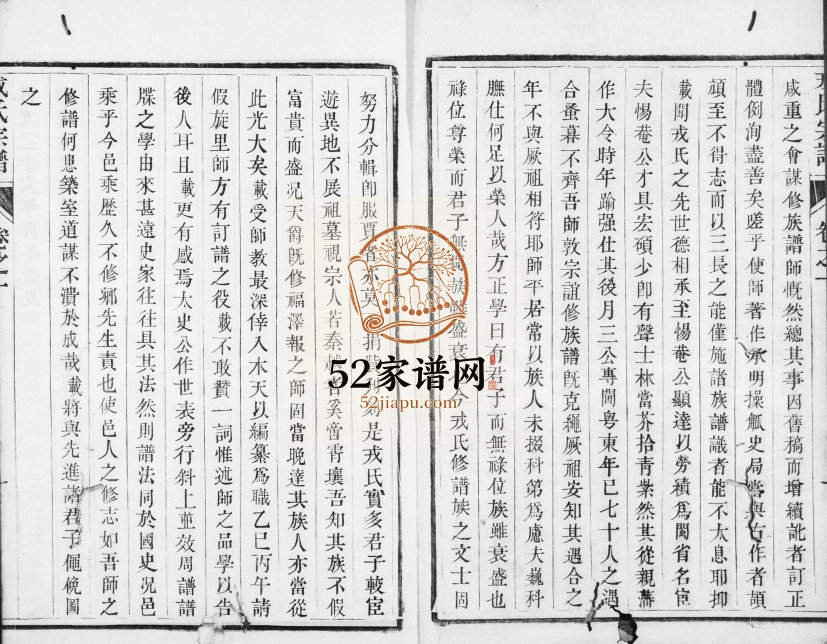 咸重之會謀修族譜師慨然總其事因舊稿而增續訛者訂正
體例洵盡善矣嗟乎使師著作承明操觚史局當與古作者頡
頏至不得志而以三長之能僅施諸族譜識者能不太息耶抑
載聞戎氏之先世德相承至惕菴公顯達以勞績為閩省名宦
夫惕菴公才具宏碩少即有聲士林當芥拾青紫然其從親藩
作大令時年踰强仕其後月三公專閫粵東年已七十人之遇
合蚤暮不齊吾師敦宗誼修族譜旣克繩厥祖安知其遇合之
年不與厥祖相符耶師平居常以族人未掇科第爲慮夫巍科
膴仕何足以榮人哉方正學曰有君子而無祿位族雖衰盛也
祿位尊榮而君子無聞族雖盛衰 今戎氏修譜族之文士固
努力分輯卽服賈者亦莫 捐貲 是戎氏實多君子較宦
遊異地不展祖墓視宗人若秦 者奚啻霄壤吾知其族不假
富貴而盛况天爵旣修福澤報之師固當晚達其族人亦當從
此光大矣載受師教最深倖入木天以編纂爲職乙巳丙午請
假旋里師方有訂譜之役載不敢贊一詞惟述師之品學以告
後人耳且載更有感焉太史公作世表旁行斜上並效周譜譜
牒之學由來甚遠史家往往具其法然則譜法同於國史况邑
乘乎今邑乘歷久不修鄉先生責也使邑人之修志如吾師之
修譜何患築室道謀不潰於成哉載將與先進諸君子僶俛圖
之
戎氏宗譜
卷之一
52家谱网
52jiapu.com